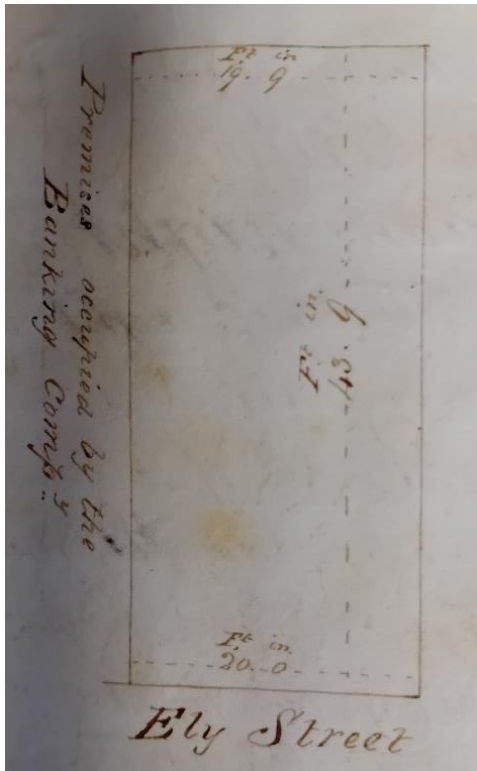 Ft in
19. 9
Premises occupied by the
Banking Compy
Ft in.
43. 9
Ft in.
20. 0
Ely Street